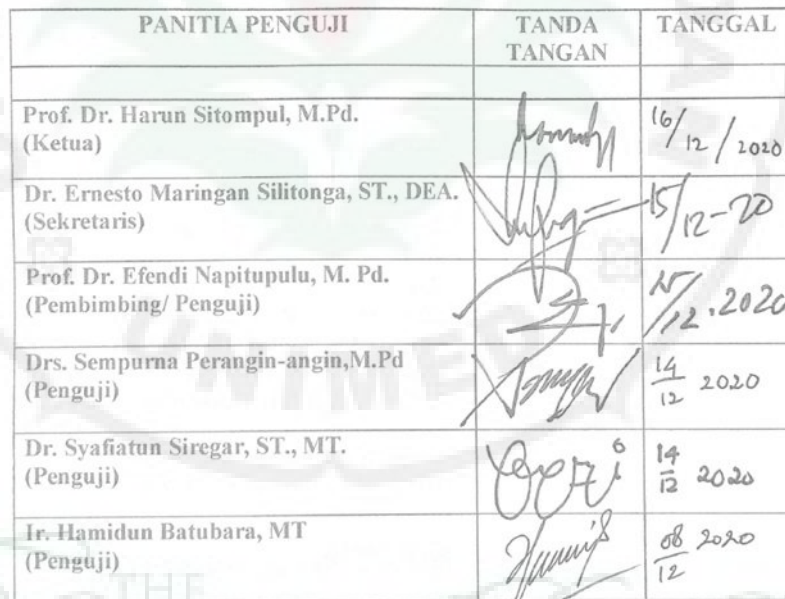 PANITIA PENGUJI TANDA TANGAN TANGGAL
Prof. Dr. Harun Sitompul, M.Pd.
(Ketua) 16/12/2020
Dr. Ernesto Maringan Silitonga, ST., DEA.
(Sekretaris) 15/12-20
Prof. Dr. Efendi Napitupulu, M. Pd.
(Pembimbing/ Penguji) /12.2020
Drs. Sempurna Perangin-angin,M.Pd
(Penguji) 14/12 2020
Dr. Syafiatun Siregar, ST., MT.
(Penguji) 14/12 2020
Ir. Hamidun Batubara, MT
(Penguji) 08/12 2020
UNIMED
THE